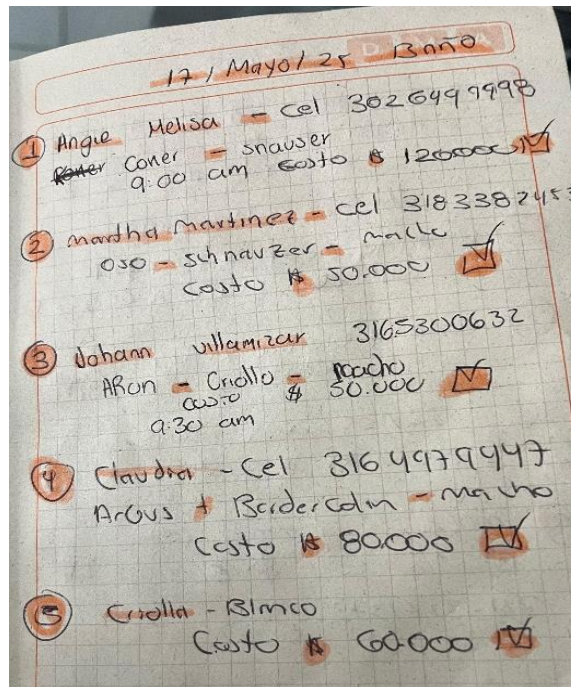 17 / Mayo / 25 Baño
1 Angie Melisa - cel 3026499998
Coner - snauser
9:00 am costo $ 120000
2 martha martinez - cel 3183382453
oso - schnauzer - macho
Costo $ 50.000
3 Johann villamizar 3165300632
ARon - Criollo - macho
costo $ 50.000
9:30 am
4 Claudia - Cel 3164979447
Argus + Bordercolin - macho
Costo $ 80000
5 Criolla - Blanco
Costo $ 60.000